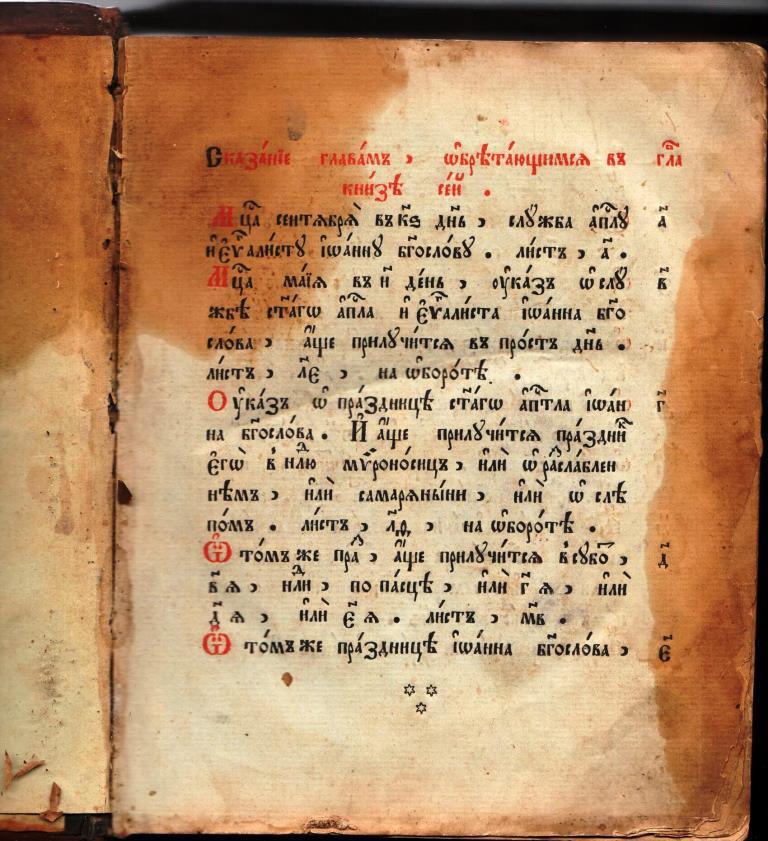 Сказа́нїе глава́мъ , ѡ҆брѣта́ющимсѧ въ гл҃а
кни́зѣ се́й .
Мц҃а сентѧбрѧ̀ въ к҃ѕ дн҃ь , слꙋжба а҆пⷭ҇лꙋ а҃
и҆ є҆ѵⷢ҇алі́стꙋ і҆ѡа́ннꙋ бг҃осло́вꙋ . ли́стъ , а҃ .
Мц҃а ма́їѧ въ и҃ де́нь , ᲂу҆ка́зъ ѡ҆ слꙋ в҃
жбѣ ст҃а́гѡ а҆пⷭ҇ла и҆ є҆ѵⷢ҇али́ста і҆ѡа́нна бг҃о
сло́ва , а҆́ще прилꙋчи́тсѧ въ про́стъ дн҃ь .
ли́стъ , л҃є , на ѡ҆боро́тѣ .
Оу҆ка́зъ ѡ҆ пра́здницѣ ст҃а́гѡ а҆пⷭ҇тла і҆ѡа́н г҃
на бг҃осло́ва . И҆ а҆́ще прилꙋчи́тсѧ пра́здни
є҆гѡ̀ в не́лю мѷроно́сицъ , и҆лѝ ѡ҆ разсла́блен
нѣмъ , и҆лѝ самарѧны́ни , и҆лѝ ѡ҆ слѣ
по́мъ . ли́стъ , л҃ѳ , на ѡ҆боро́тѣ .
Ѿ то́мъ же пра́ , а҆́ще прилꙋчи́тсѧ в сꙋбо́ , д҃
в҃ ѧ , и҆лѝ , по па́сцѣ , и҆лѝ г҃ ѧ , и҆лѝ
д҃ ѧ , и҆лѝ є҃ ѧ . ли́стъ , м҃в .
Ѿ то́мъ же пра́здницѣ і҆ѡа́нна бг҃осло́ва , є҃